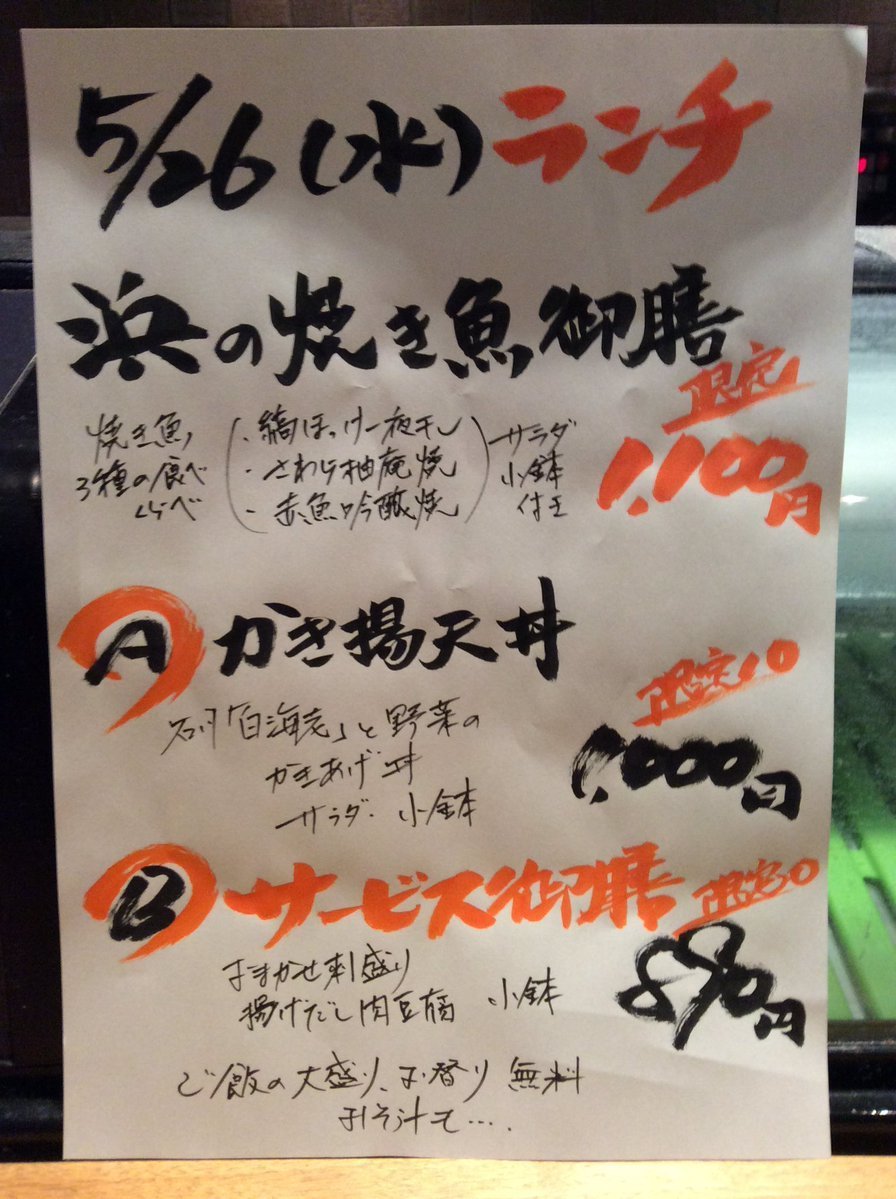 5/26(水)ランチ
浜の焼き魚御膳
限定
1,100円
焼き魚
3種の食べ
くらべ
・縞ほっけ一夜干し
・さわら柚庵焼
・赤魚吟醸焼
サラダ
小鉢
付き
A かき揚天丼
限定10
1,000円
石川「白海老」と野菜の
かきあげ丼
サラダ・小鉢
B サービス御膳
限定
890円
おまかせ刺盛り
揚げだし肉豆腐 小鉢
ご飯の大盛り、お替り 無料
みそ汁も‥‥